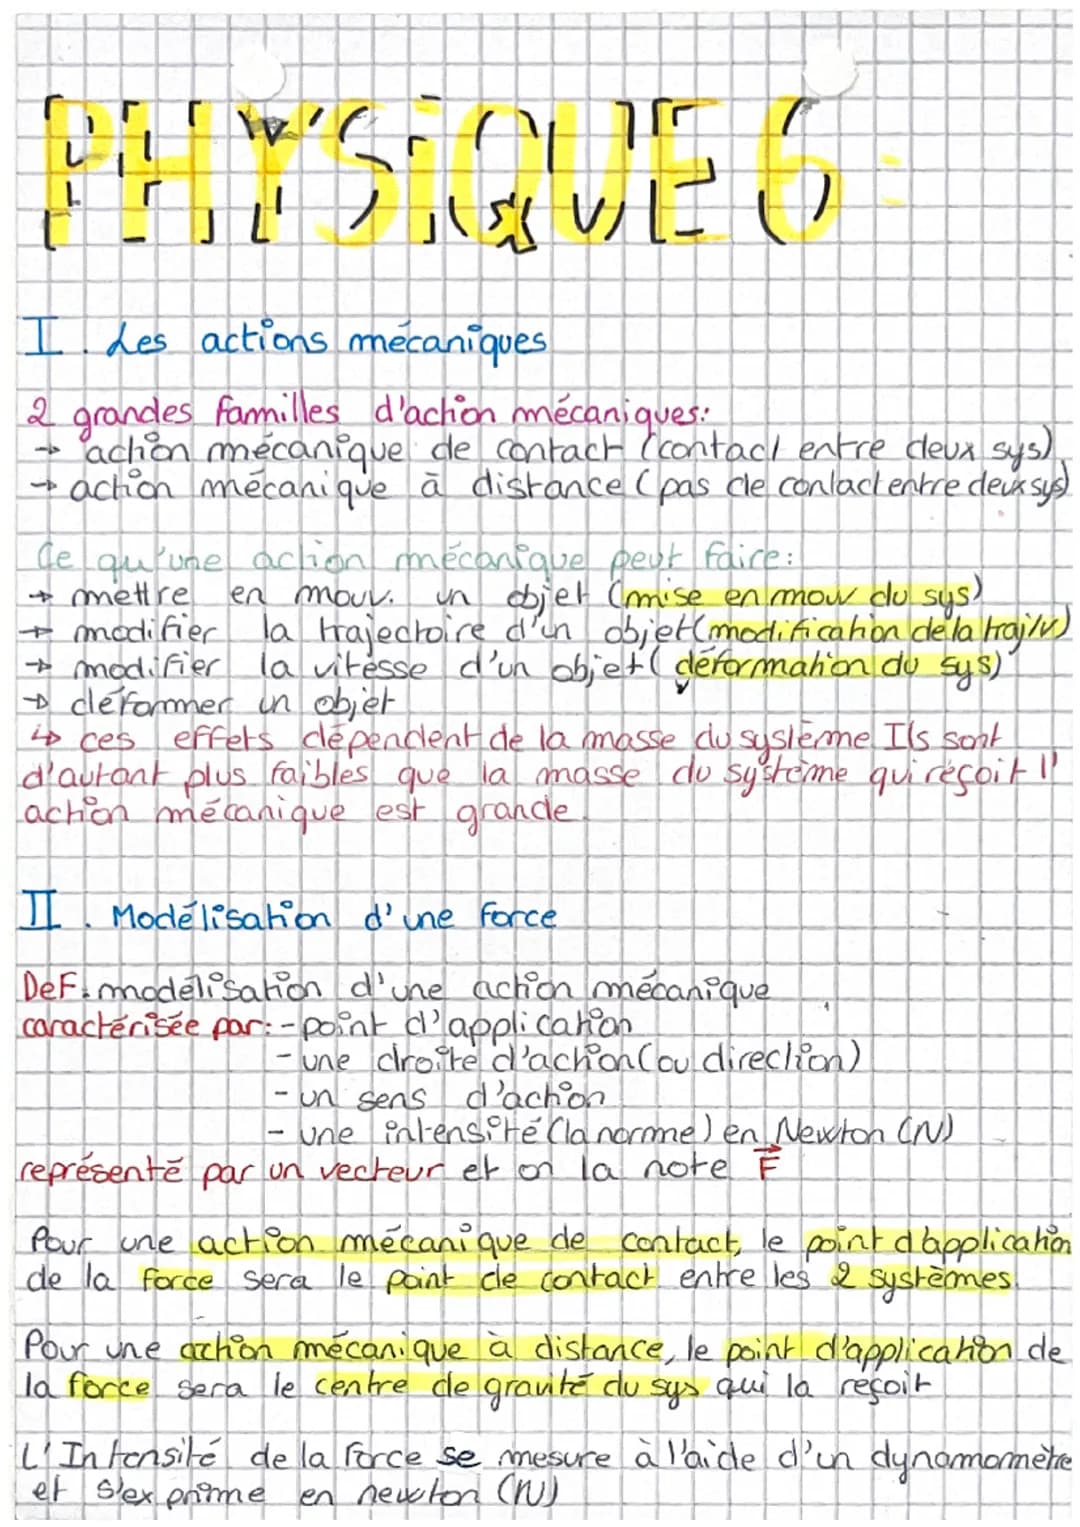 PHYSiQUE 6 :
I. Les actions mécaniques
2 grandes familles d'action mécaniques:
→ action mécanique de contact (contact entre deux sys)
→ action mécanique à distance (pas de contact entre deux sys)
Ce qu'une action mécanique peut faire:
→ mettre en mouv. un objet (mise en mouv du sys)
→ modifier la trajectoire d'un objet (modification de la traj/v)
→ modifier la vitesse d'un objet (déformation du sys)
→ déformer un objet
↳ ces effets dépendent de la masse du système Ils sont
d'autant plus faibles que la masse du système qui reçoit l'
action mécanique est grande.
II. Modélisation d'une force
Def: modélisation d'une action mécanique
caractérisée par: - point d'application
- une droite d'action (ou direction)
- un sens d'action
- une intensité (la norme) en Newton (N)
représenté par un vecteur et on la note F⃗
Pour une action mécanique de contact, le point d'application
de la force sera le point de contact entre les 2 systèmes.
Pour une action mécanique à distance, le point d'application de
la force sera le centre de gravité du sys qui la reçoit
L'Intensité de la force se mesure à l'aide d'un dynamomètre
et s'exprime en newton (N)